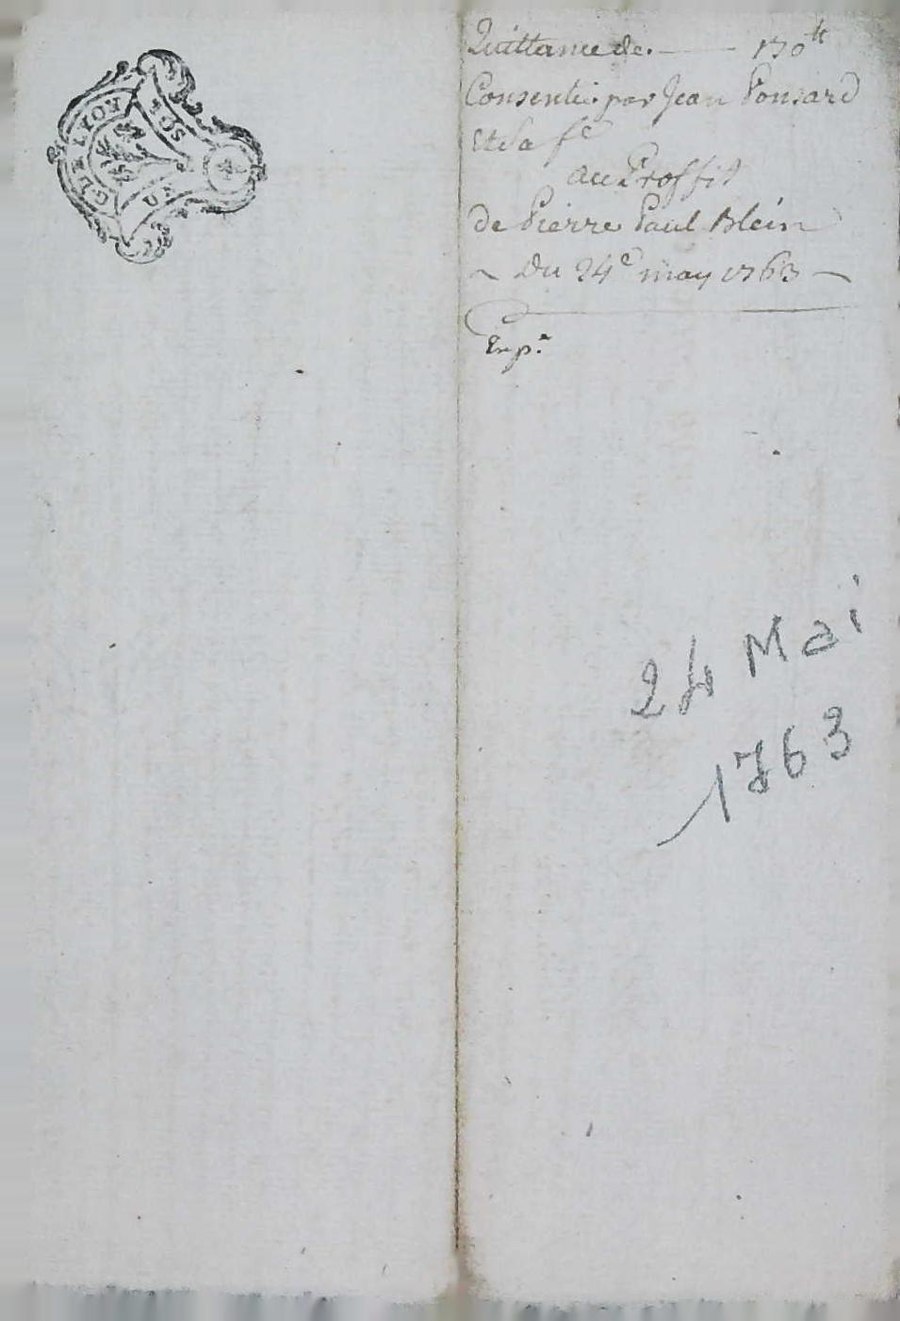 GEN LYON
SOLS
Quittance de. — 170 tt
Consentie par Jean Ponsard
Et Sa fe
au Proffit
de Pierre Paul Blein
~ Du 24e may 1763 ~
Exp.
24 Mai
1763